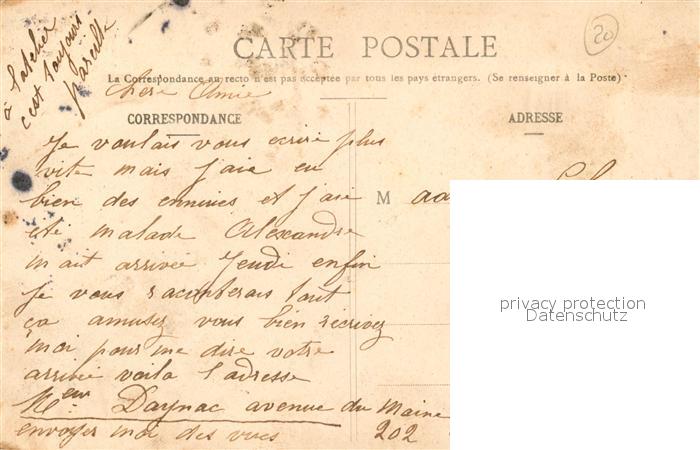 à l'atelier
c'est toujours
pareille
20
CARTE POSTALE
La Correspondance au recto n'est pas acceptée par tous les pays étrangers. (Se renseigner à la Poste)
Chère Amie
CORRESPONDANCE
ADRESSE
Je voulais vous ecrire plus
vite mais j'aie eu
bien des ennuies et j'aie
M
eté malade Alexandre
m'ait arrivée Jeudi enfin
Je vous raconterais tout
ça amusez vous bien récrivez
moi pour me dire votre
arrivée voila l'adresse
Daynac avenue du Maine
202
envoyer moi des vues
privacy protection
Datenschutz